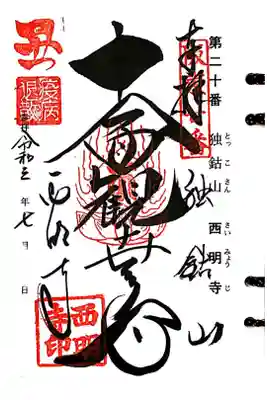 第二十番 独鈷山 西明寺
とっこさん さいみょうじ
奉拝
独鈷山
十一面観世音
西明寺
令和三年七月 日
丑
疫病退散
西明寺印